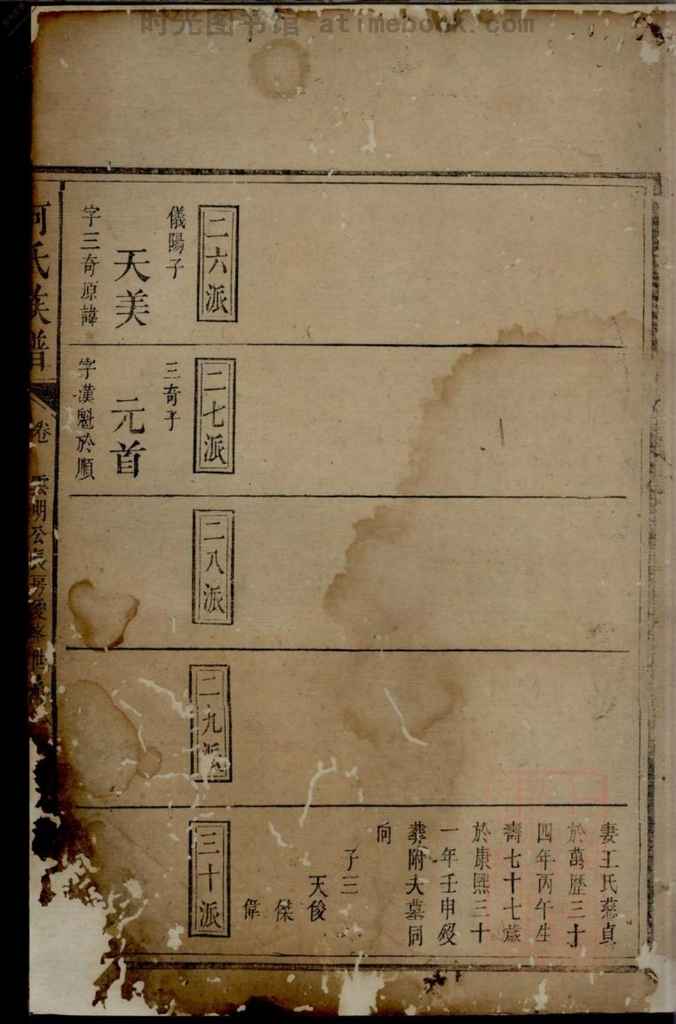 时光图书馆 atimebook.com
妻王氏慈貞
於萬歷三十
四年丙午生
壽七十七歲
於康熙三十
一年壬申歿
葬附夫墓同
向
子三
天俊
傑
偉
二六派
儀陽子
天美
字三奇原諱
二七派
三奇子
元首
字漢魁於順
二八派
二九派
三十派
何氏族譜
卷
公長房